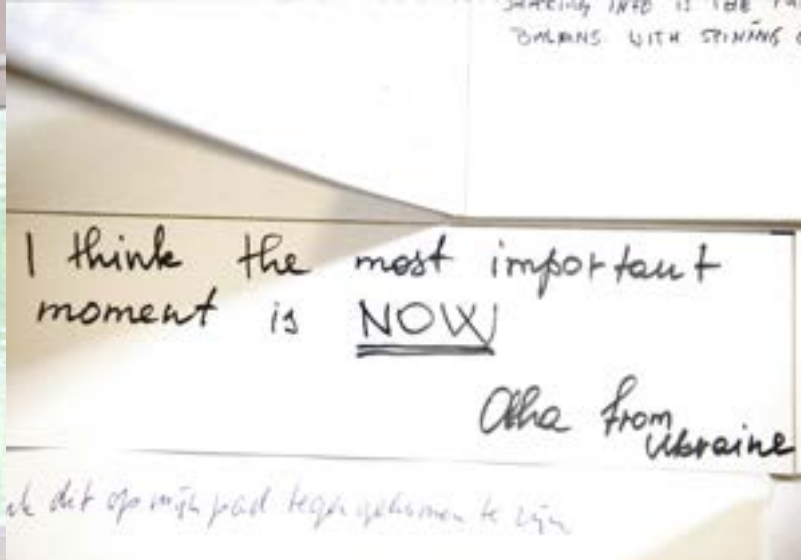 SHARING INFO IS THE
WITH SPINING
I think the most important
moment is NOW
Olha from
Ukraine
dit op mijn pad tegen gekomen te zijn